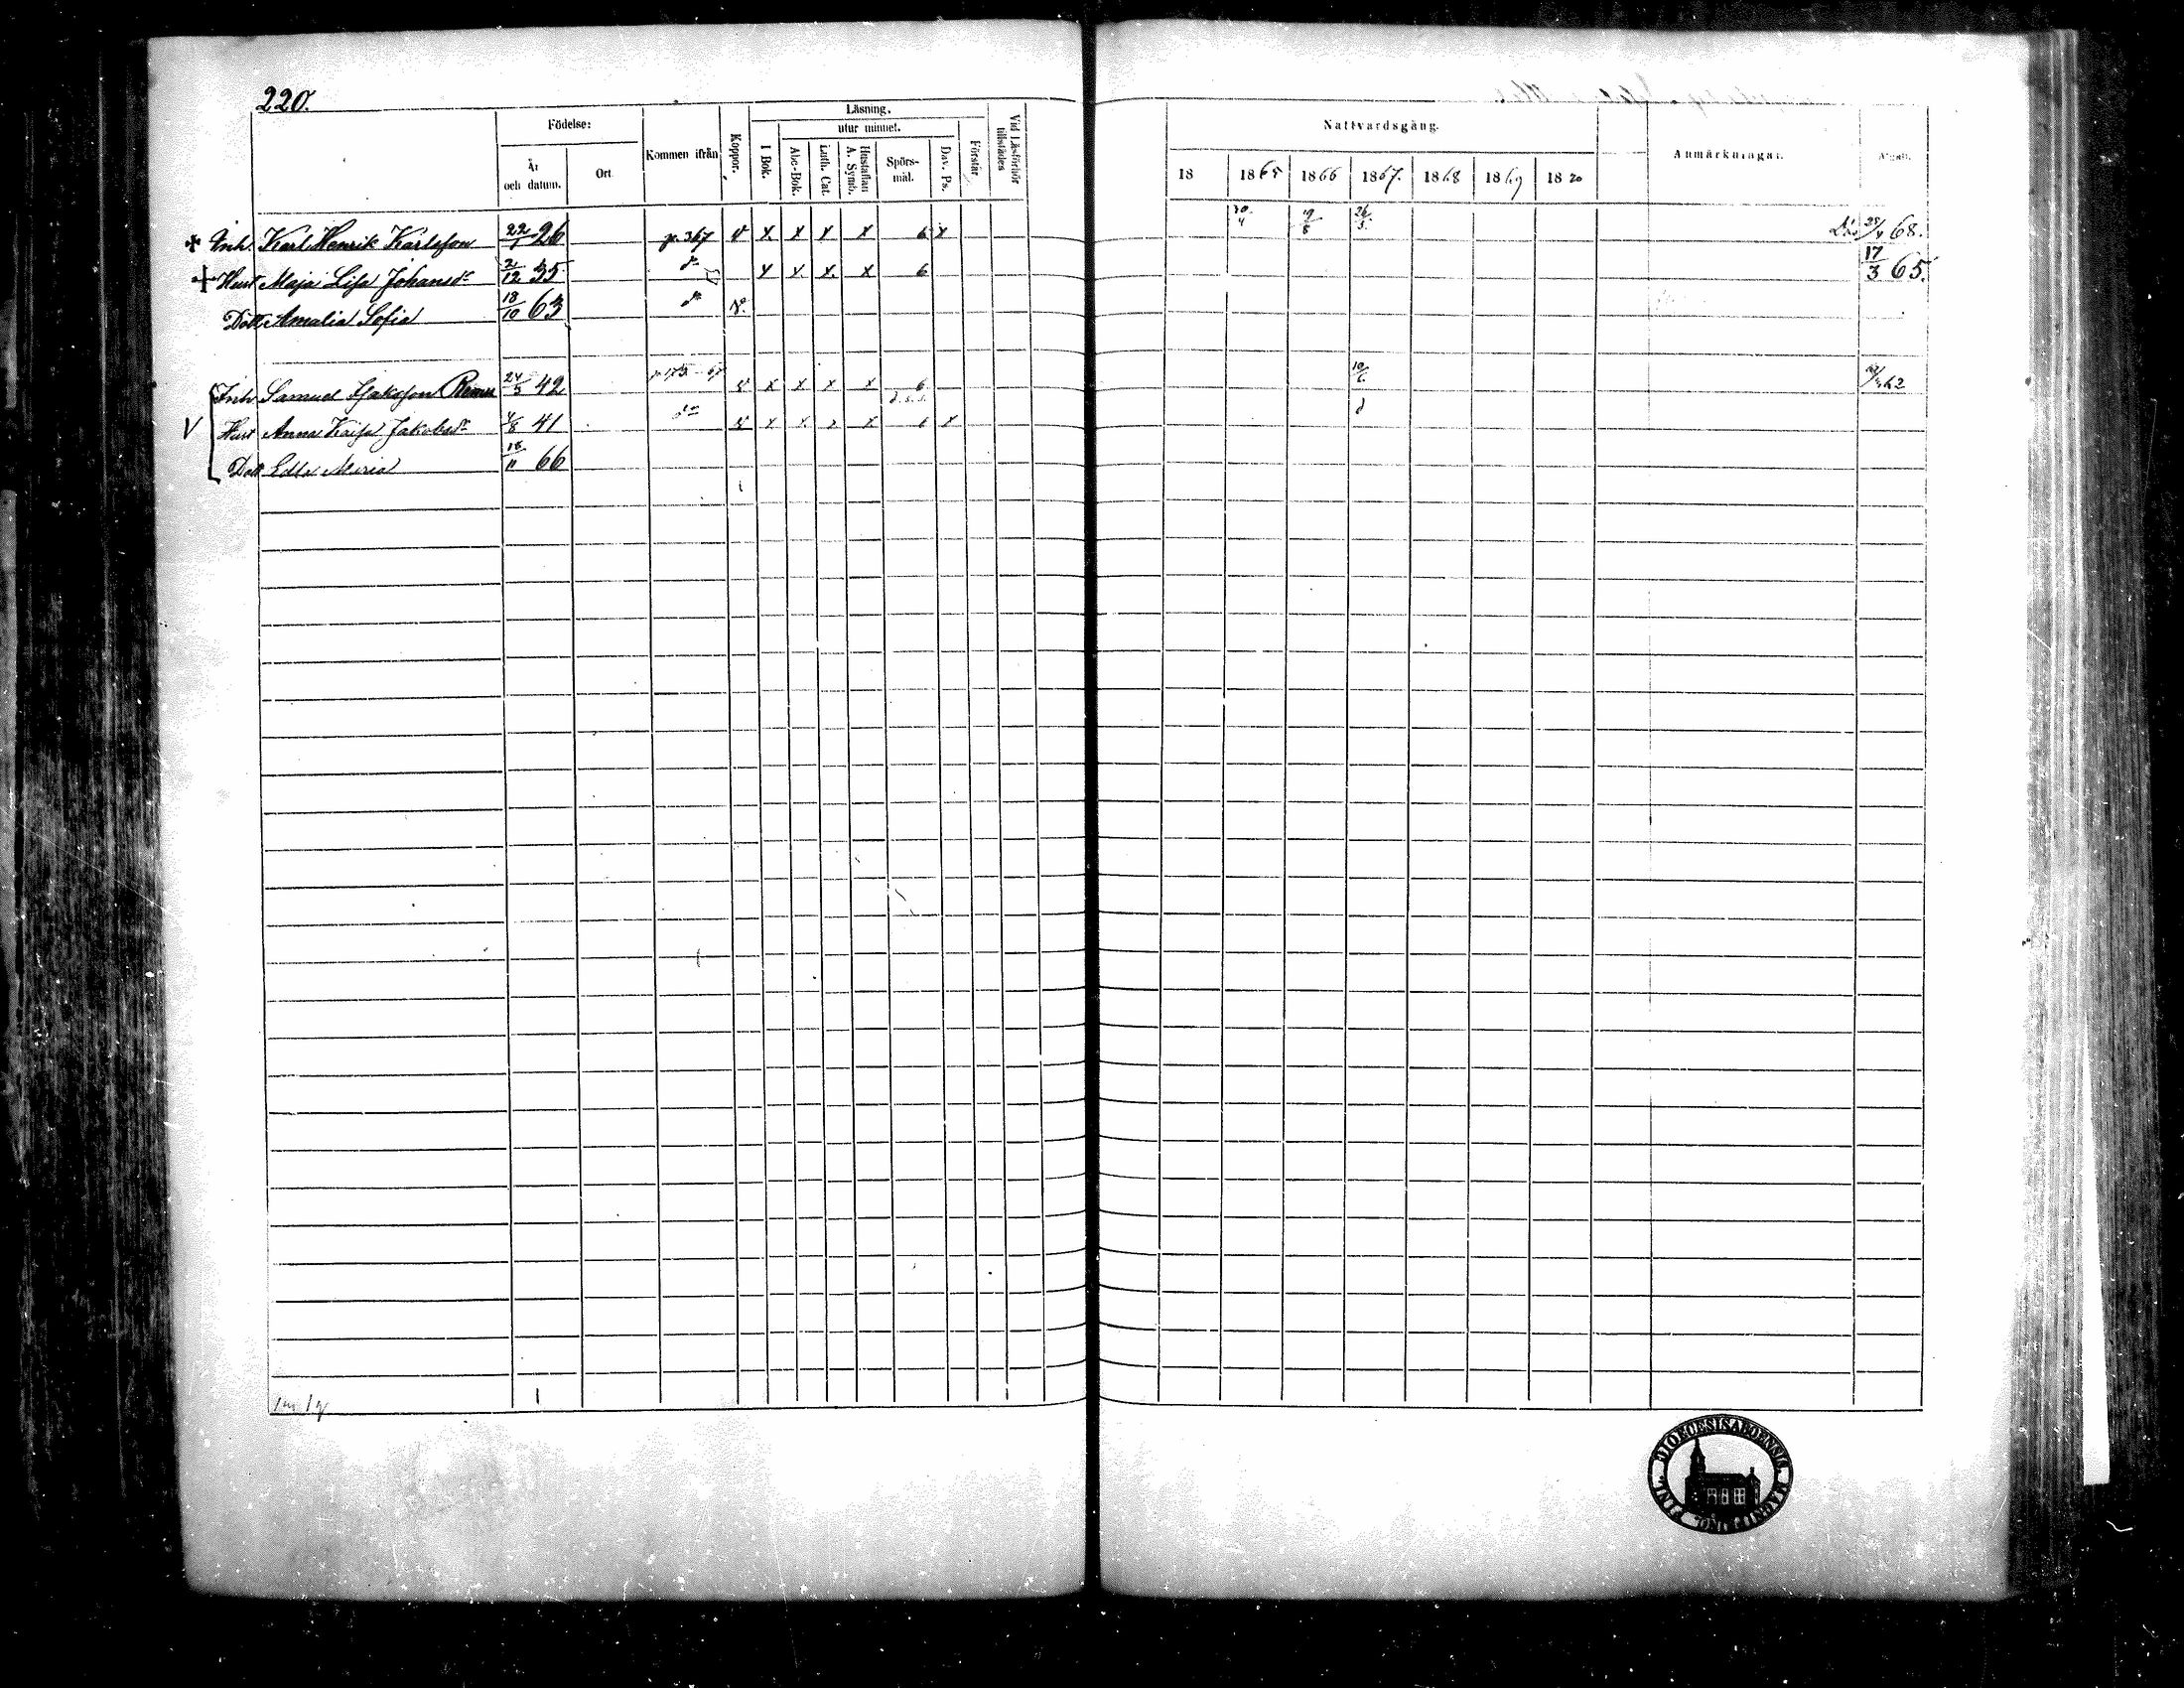 220.
Födelse:
År och datum.
Ort
Kommen ifrån
Koppor.
Läsning.
I Bok.
utur minnet.
Abc-Bok.
Luth. Cat.
Hustaflan A. Symb.
Spörs-mål.
Dav. Ps.
Förstår
Vid Läsförhör tillstädes
Nattvardsgång.
18 1865 1866 1867. 1868 1869 1870
Anmärkningar.
Afgått.
Inh. Karl Henrik Karlsson 22/1 26 p. 367 v x x x x 6 x 30/4 9/8 26/5 68.
Hust Maja Lisa Johansdr 21/12 35 do x x x x 6 17/3 65.
Dott Amalia Sofia 18/10 63 do v.
Inh Samuel Isaksson 24/5 42 p 175 67 v x x x x 6 10/6
Hust Anna Kaisa Jakobsdr 4/8 41 do v x x x x 6 x
Dott Edla Maria 18/11 66
DIOECESIS ABOENSIS